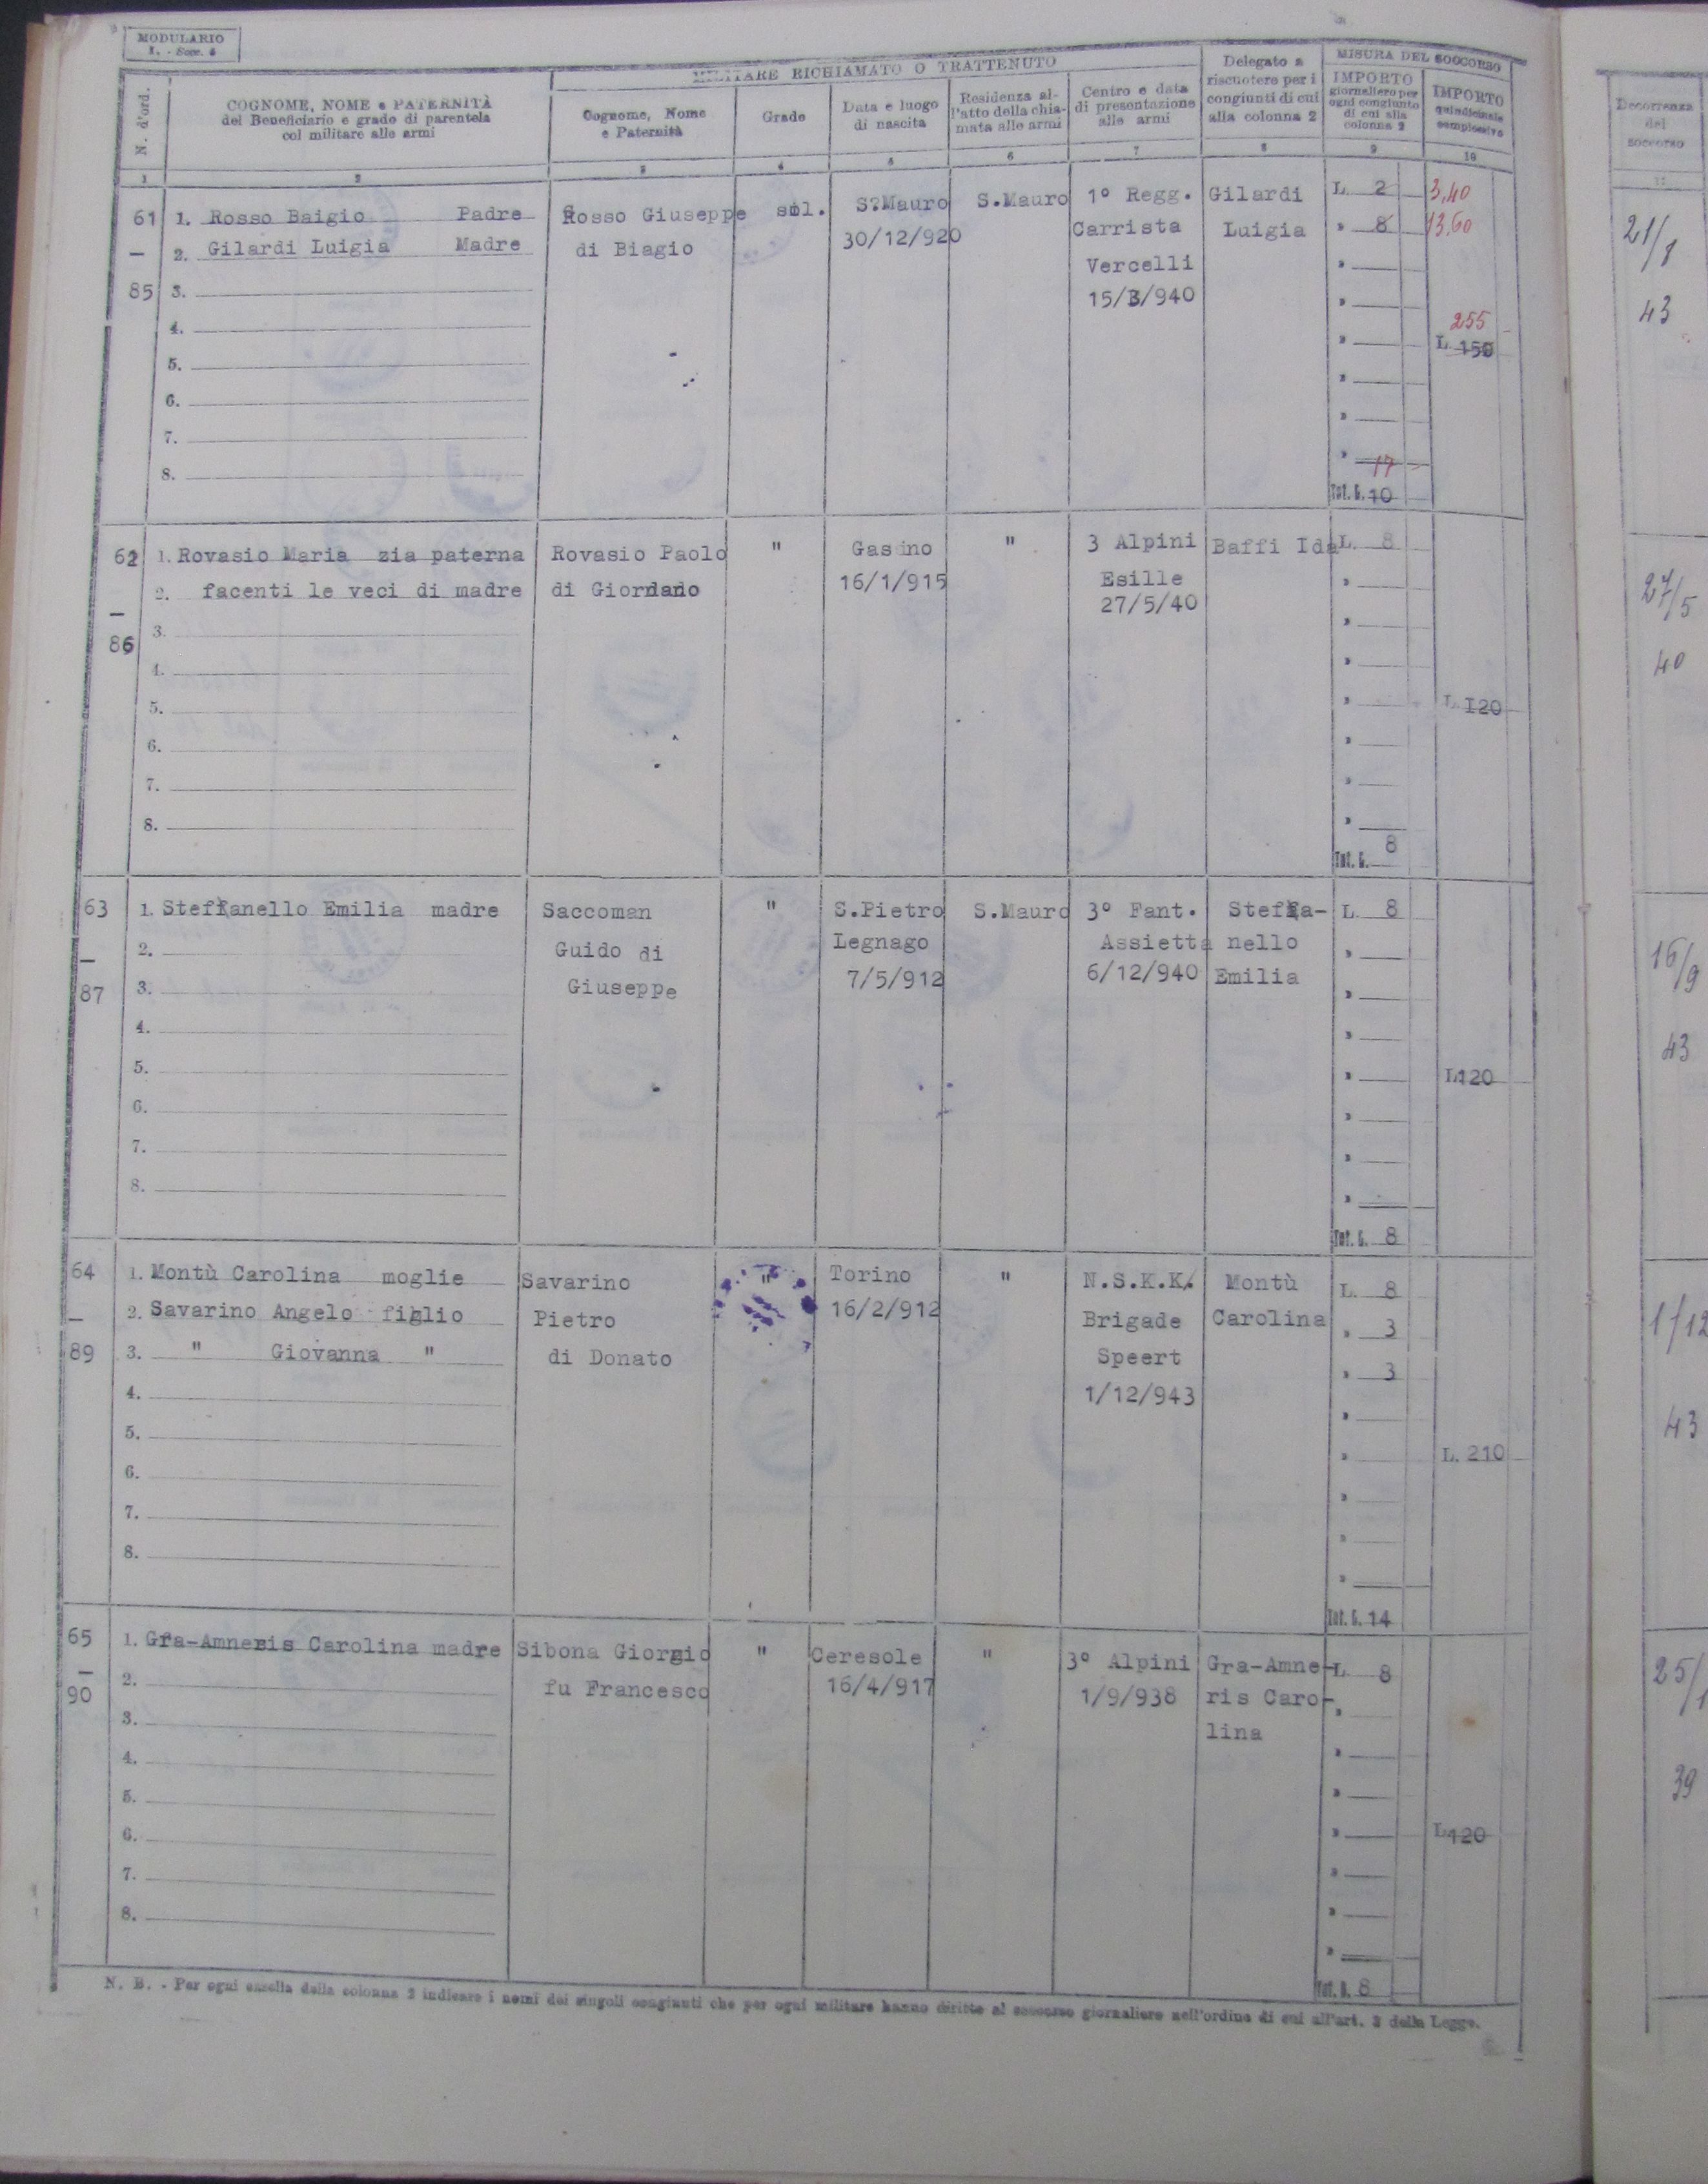 MODULARIO
I. - Socc. 4
N. d'ord.
COGNOME, NOME e PATERNITÀ
del Beneficiario e grado di parentela
col militare alle armi
MILITARE RICHIAMATO O TRATTENUTO
Cognome, Nome
e Paternità
Grado
Data e luogo
di nascita
Residenza al-
l'atto della chia-
mata alle armi
Centro e data
di presentazione
alle armi
Delegato a
riscuotere per i
congiunti di cui
alla colonna 2
MISURA DEL SOCCORSO
IMPORTO
giornaliero per
ogni congiunto
di cui alla
colonna 2
IMPORTO
quindicinale
complessivo
Decorrenza
del
soccorso
1 2 3 4 5 6 7 8 9 10 11
61 1. Rosso Baigio Padre Rosso Giuseppe sol. S?Mauro S.Mauro 1° Regg. Gilardi L. 2 3,40
— 2. Gilardi Luigia Madre di Biagio 30/12/920 Carrista Luigia » 8 13,60 21/1
85 3. Vercelli »
15/3/940 » 43
4. 255
» L. 150
5. »
6. »
7. »
8. 17
Tot. G. 10
62 1. Rovasio Maria zia paterna Rovasio Paolo " Gasino " 3 Alpini Baffi Ida L. 8
2. facenti le veci di madre di Giordano 16/1/915 Esille » 27/5
— 3. 27/5/40 »
86 4. » 40
5. » L. 120
6. »
7. »
8. »
Tot. G. 8
63 1. Steffanello Emilia madre Saccoman " S.Pietro S.Mauro 3° Fant. Steffa- L. 8
— 2. Guido di Legnago Assietta nello » 16/9
87 3. Giuseppe 7/5/912 6/12/940 Emilia »
4. » 43
5. » L.120
6. »
7. »
8. »
Tot. G. 8
64 1. Montù Carolina moglie Savarino " Torino " N.S.K.K. Montù L. 8
— 2. Savarino Angelo figlio Pietro 16/2/912 Brigade Carolina » 3 1/12
89 3. " Giovanna " di Donato Speert » 3
4. 1/12/943 » 43
5. » L. 210
6. »
7. »
8. »
Tot. G. 14
65 1. Gra-Amneris Carolina madre Sibona Giorgio " Ceresole " 3° Alpini Gra-Amne- L. 8
— 2. fu Francesco 16/4/917 1/9/938 ris Caro- » 25/1
90 3. lina »
4. » 39
5. »
6. » L.120
7. »
8. »
Tot. G. 8
N. B. - Per ogni casella della colonna 2 indicare i nomi dei singoli congiunti che per ogni militare hanno diritto al soccorso giornaliero nell'ordine di cui all'art. 2 della Legge.